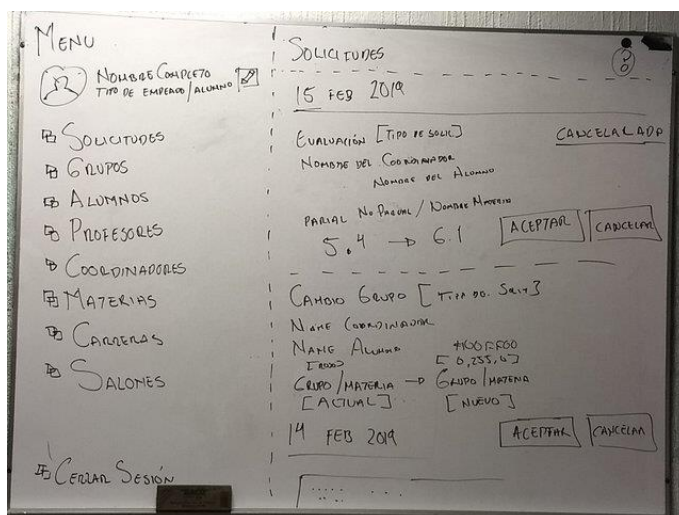 MENU
NOMBRE COMPLETO
TIPO DE EMPLEADO/ALUMNO
SOLICITUDES
GRUPOS
ALUMNOS
PROFESORES
COORDINADORES
MATERIAS
CARRERAS
SALONES
CERRAR SESIÓN
SOLICITUDES
?
15 FEB 2019
EVALUACIÓN [TIPO DE SOLIC]
CANCELALADA
NOMBRE DEL COORDINADOR
NOMBRE DEL ALUMNO
PARCIAL NO PARCIAL / NOMBRE MATERIA
5.4 → 6.1
ACEPTAR
CANCELAR
CAMBIO GRUPO [TIPO DO.
NAME COORDINADOR
NAME ALUMNO
[ROJO]
[0,255,0]
GRUPO/MATERIA → GRUPO/MATERIA
[ACTUAL] [NUEVO]
14 FEB 2019
ACEPTAR
CANCELAR